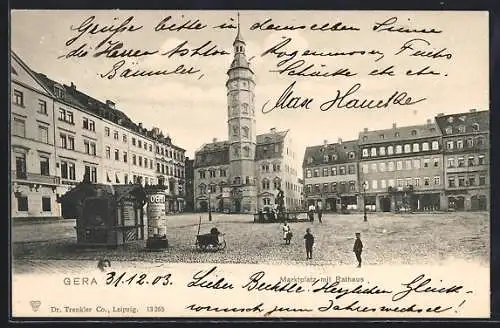 Grüße bitte in demselben Sinne
die Herren Kogenmoser, Fuchs
Bäumler, Schücke etc etc.
Max Hauschke
GERA 31.12.03.
Marktplatz mit Rathaus
Lieber Bechtle! Herzlichen Glück-
wunsch zum Jahreswechsel!
Dr. Trenkler Co., Leipzig. 13 265